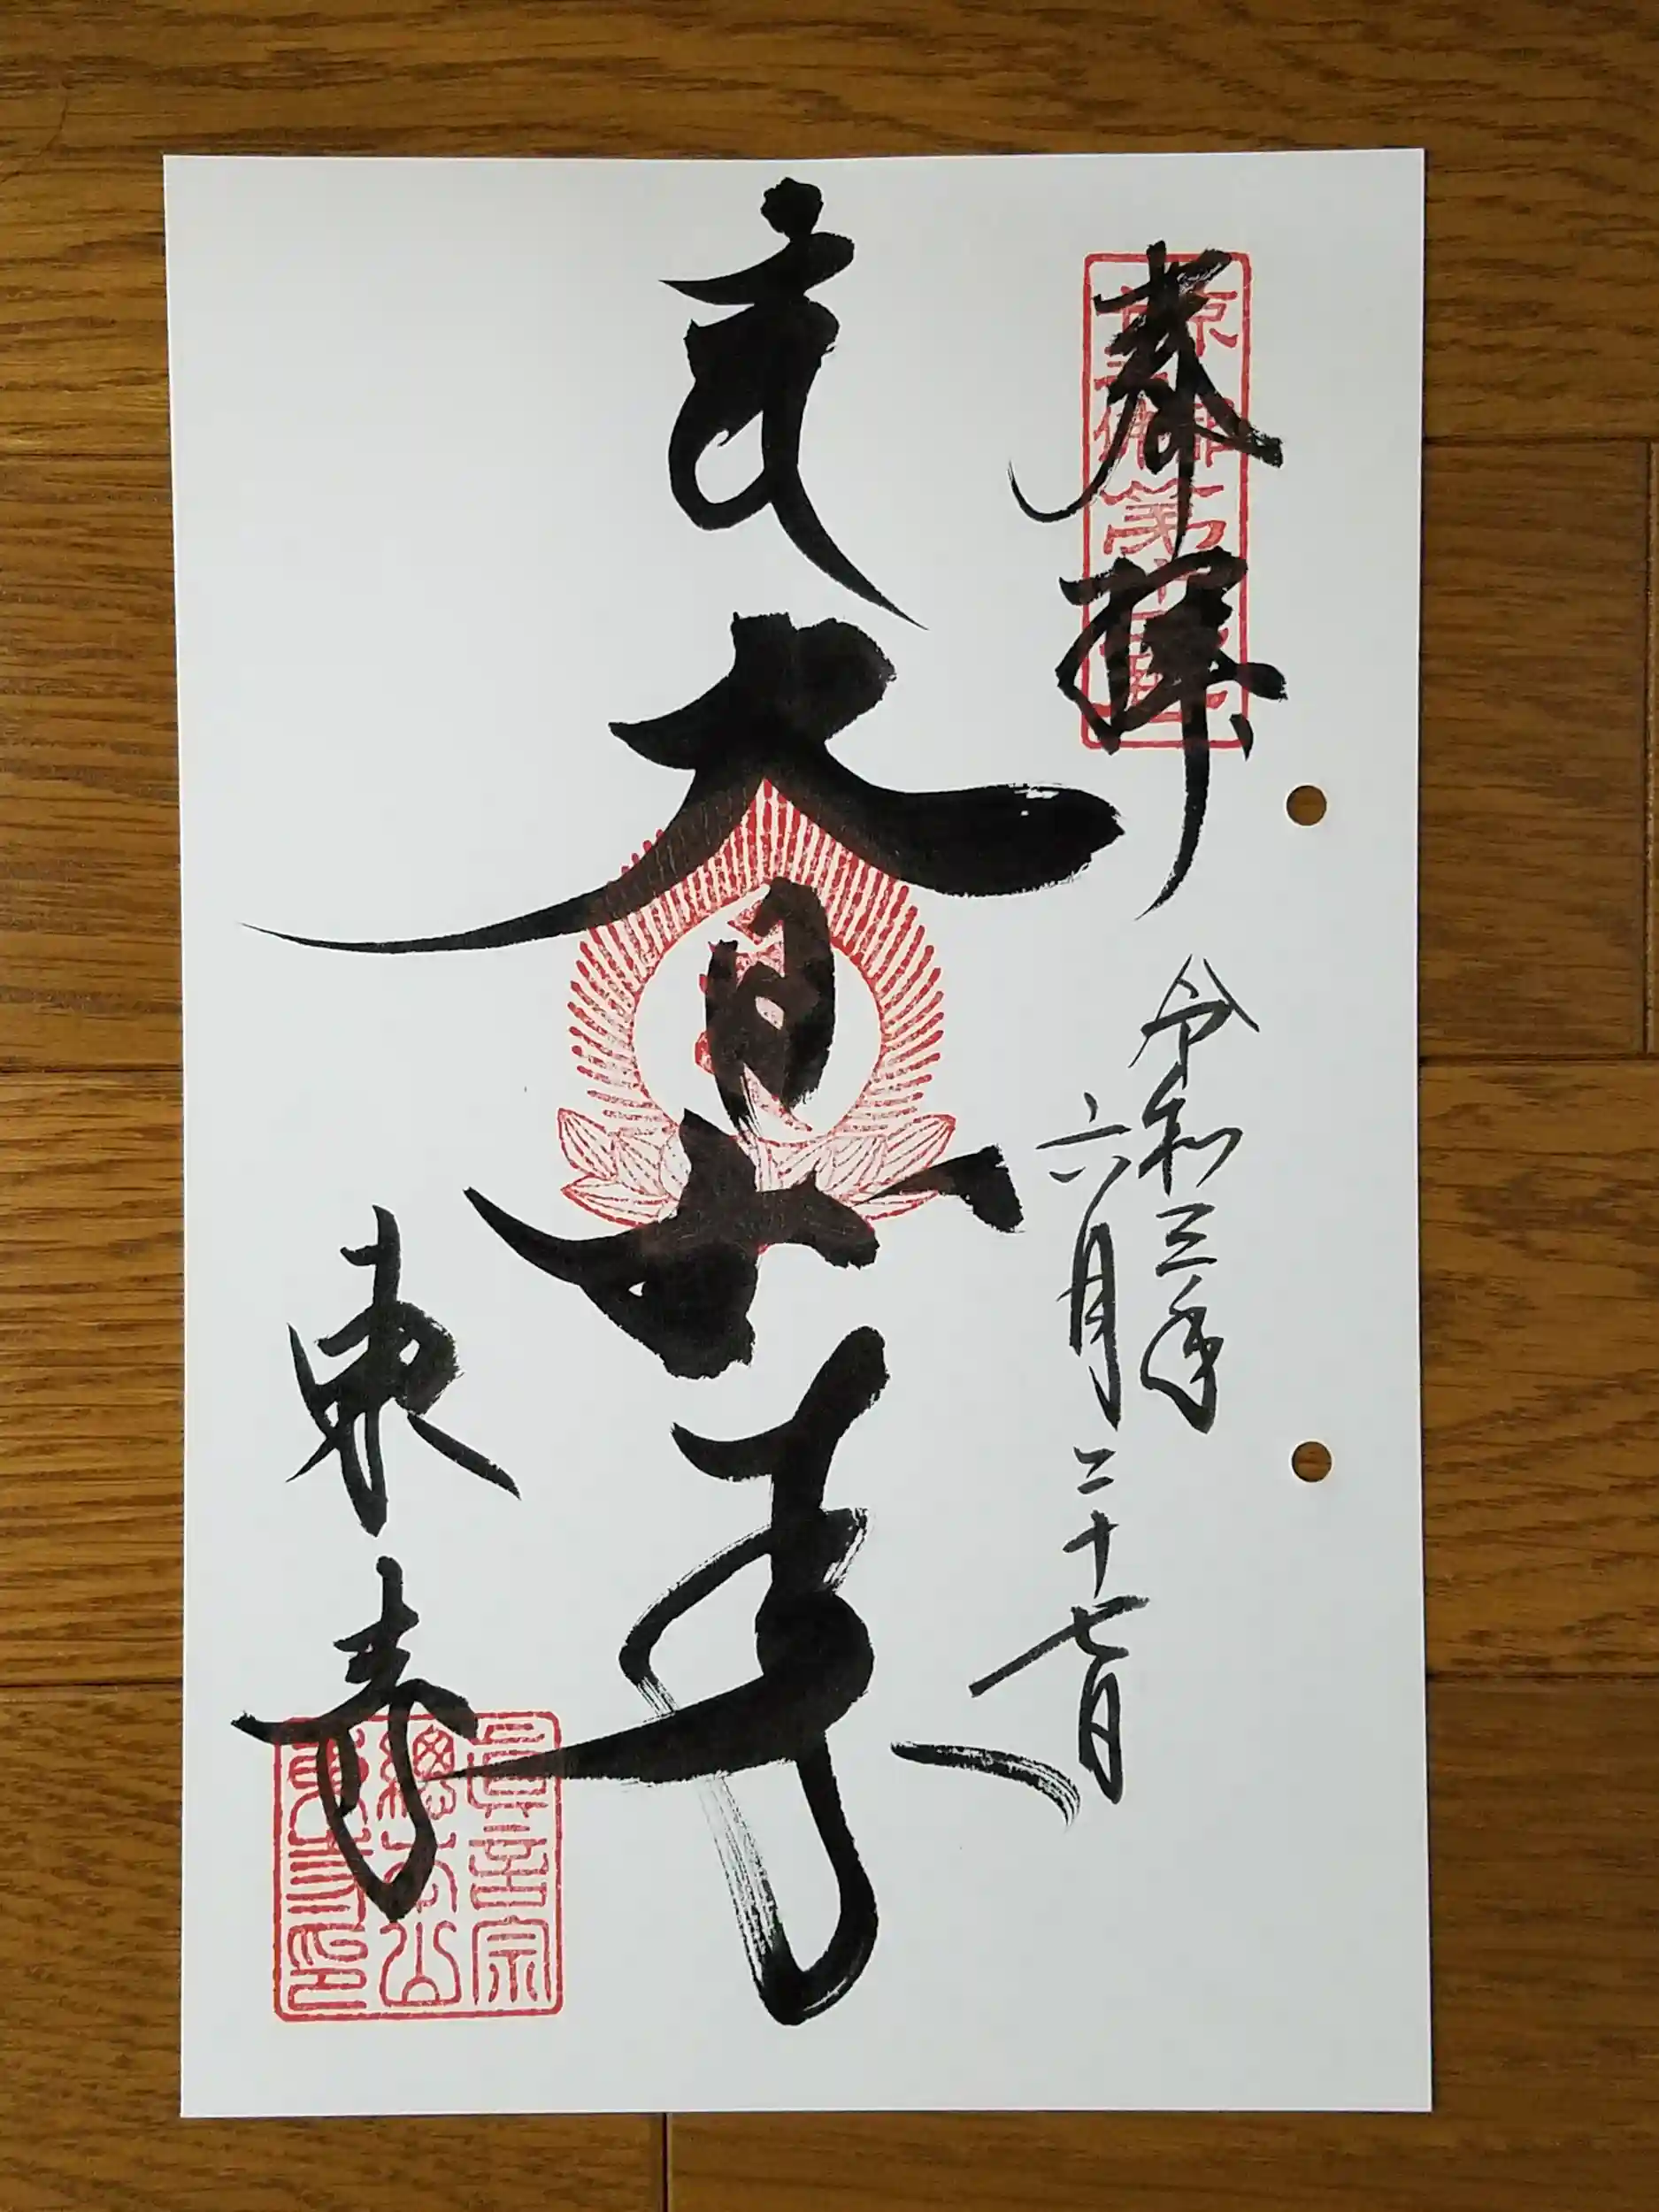 奉拝
令和三年
六月二十七日
大日如来
東寺
真言宗
総本山
東寺印